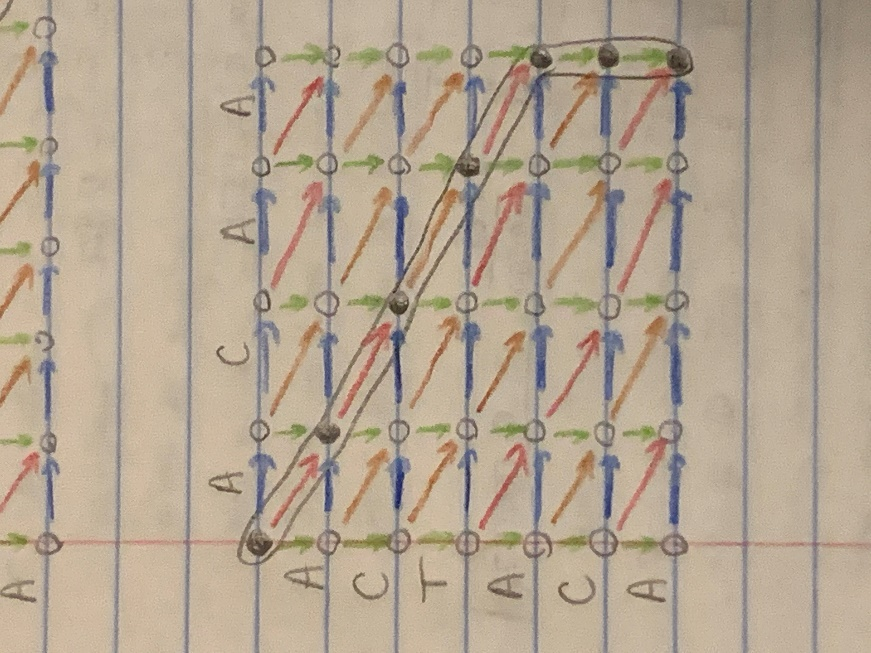 A
A C A A
A
C
T
A
C
A